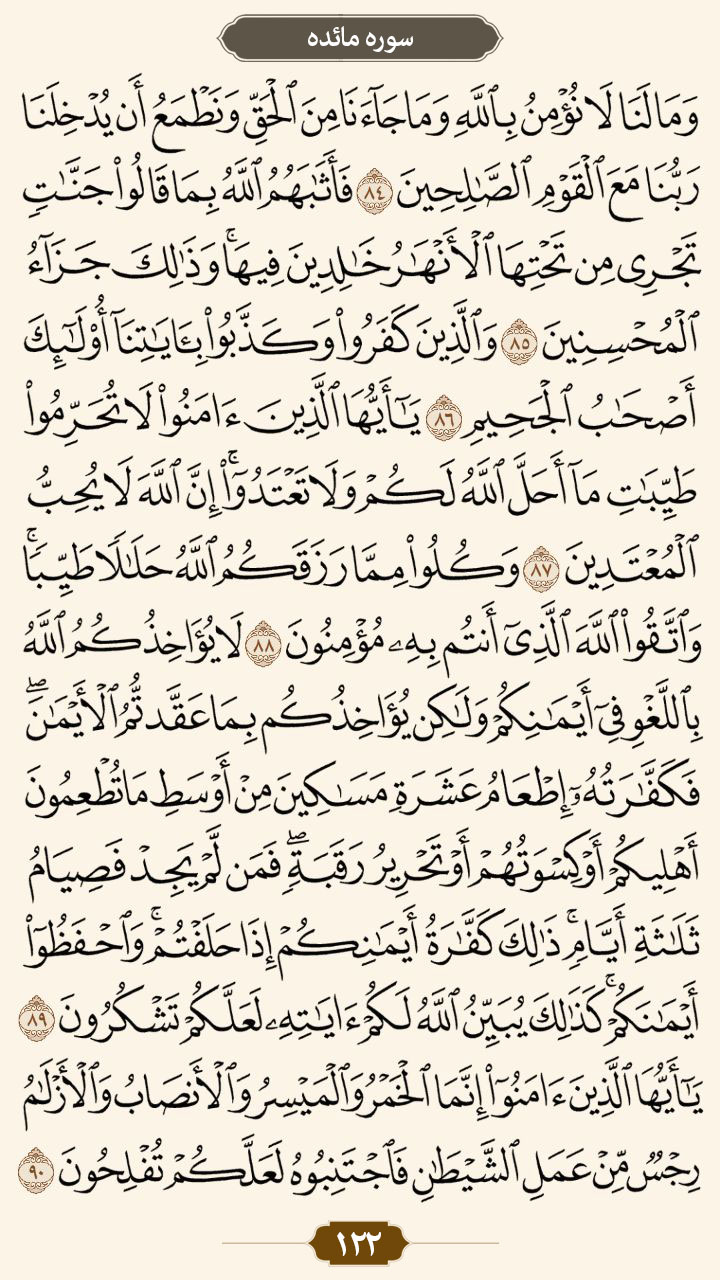 سوره مائده
وَمَا لَنَا لَا نُؤْمِنُ بِٱللَّهِ وَمَا جَآءَنَا مِنَ ٱلْحَقِّ وَنَطْمَعُ أَن يُدْخِلَنَا
رَبُّنَا مَعَ ٱلْقَوْمِ ٱلصَّٰلِحِينَ ٨٤ فَأَثَٰبَهُمُ ٱللَّهُ بِمَا قَالُوا۟ جَنَّٰتٍ
تَجْرِى مِن تَحْتِهَا ٱلْأَنْهَٰرُ خَٰلِدِينَ فِيهَا ۚ وَذَٰلِكَ جَزَآءُ
ٱلْمُحْسِنِينَ ٨٥ وَٱلَّذِينَ كَفَرُوا۟ وَكَذَّبُوا۟ بِـَٔايَٰتِنَآ أُو۟لَٰٓئِكَ
أَصْحَٰبُ ٱلْجَحِيمِ ٨٦ يَٰٓأَيُّهَا ٱلَّذِينَ ءَامَنُوا۟ لَا تُحَرِّمُوا۟
طَيِّبَٰتِ مَآ أَحَلَّ ٱللَّهُ لَكُمْ وَلَا تَعْتَدُوٓا۟ ۚ إِنَّ ٱللَّهَ لَا يُحِبُّ
ٱلْمُعْتَدِينَ ٨٧ وَكُلُوا۟ مِمَّا رَزَقَكُمُ ٱللَّهُ حَلَٰلًا طَيِّبًا ۚ
وَٱتَّقُوا۟ ٱللَّهَ ٱلَّذِىٓ أَنتُم بِهِۦ مُؤْمِنُونَ ٨٨ لَا يُؤَاخِذُكُمُ ٱللَّهُ
بِٱللَّغْوِ فِىٓ أَيْمَٰنِكُمْ وَلَٰكِن يُؤَاخِذُكُم بِمَا عَقَّدتُّمُ ٱلْأَيْمَٰنَ ۖ
فَكَفَّٰرَتُهُۥٓ إِطْعَامُ عَشَرَةِ مَسَٰكِينَ مِنْ أَوْسَطِ مَا تُطْعِمُونَ
أَهْلِيكُمْ أَوْ كِسْوَتُهُمْ أَوْ تَحْرِيرُ رَقَبَةٍ ۖ فَمَن لَّمْ يَجِدْ فَصِيَامُ
ثَلَٰثَةِ أَيَّامٍ ۚ ذَٰلِكَ كَفَّٰرَةُ أَيْمَٰنِكُمْ إِذَا حَلَفْتُمْ ۚ وَٱحْفَظُوٓا۟
أَيْمَٰنَكُمْ ۚ كَذَٰلِكَ يُبَيِّنُ ٱللَّهُ لَكُمْ ءَايَٰتِهِۦ لَعَلَّكُمْ تَشْكُرُونَ ٨٩
يَٰٓأَيُّهَا ٱلَّذِينَ ءَامَنُوٓا۟ إِنَّمَا ٱلْخَمْرُ وَٱلْمَيْسِرُ وَٱلْأَنصَابُ وَٱلْأَزْلَٰمُ
رِجْسٌ مِّنْ عَمَلِ ٱلشَّيْطَٰنِ فَٱجْتَنِبُوهُ لَعَلَّكُمْ تُفْلِحُونَ ٩٠
١٢٢